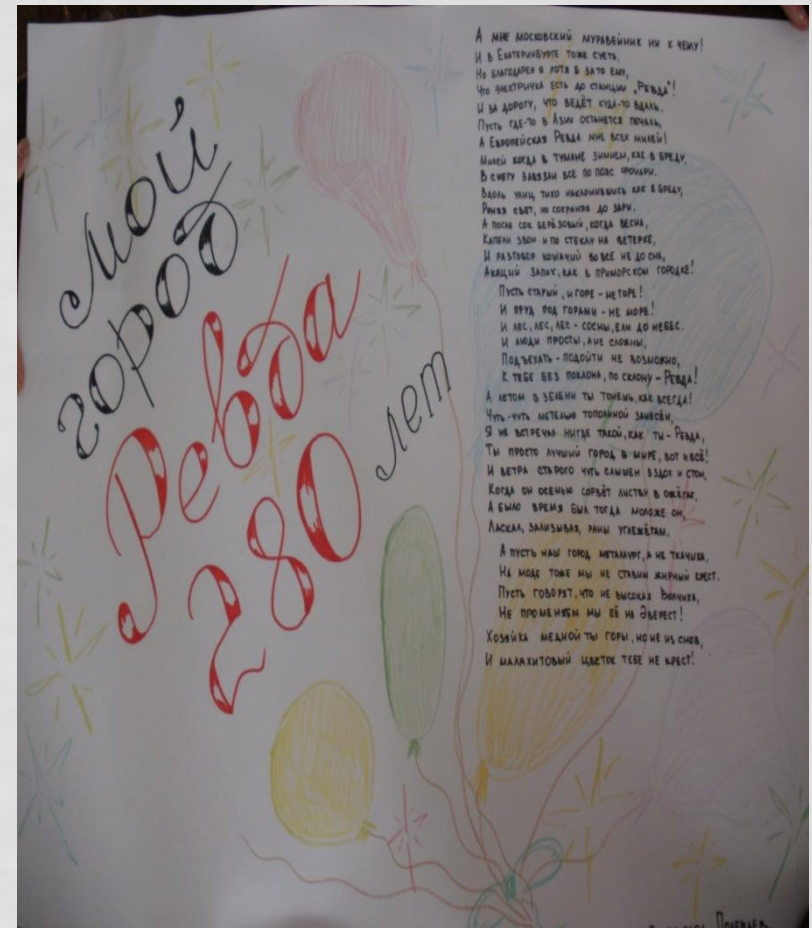 мой
город
Ревда
280
лет
А мне московский муравейник ни к чему!
И в Екатеринбурге тоже суета,
Но благодарен я хотя б за то ему,
Что электричка есть до станции „Ревда"!
И за дорогу, что ведёт куда-то вдаль.
Пусть где-то в Азии останется печаль,
А Европейская Ревда мне всех милей!
Милей когда в тумане зимнем, как в бреду,
В снегу завязли все по пояс фонари.
Вдоль улиц тихо наклонившись как в бреду,
Роняя свет, но сохраняя до зари.
А после сок берёзовый, когда весна,
Капели звон и по стеклу на ветерке,
И разговор кошачий вовсе не до сна,
Акаций запах, как в приморском городке!
Пусть старый, и горе - не горе!
И пруд под горами - не море!
И лес, лес, лес - сосны, ели до небес.
И люди просты, а не сложны,
Подъехать - подойти не возможно,
К тебе без поклона, по склону - Ревда!
А летом в зелени ты тонешь, как всегда!
Чуть-чуть метелью тополиной занесён,
Я не встречал нигде такой, как ты - Ревда,
Ты просто лучший город в мире, вот и всё!
И ветра старого чуть слышен вздох и стон,
Когда он осенью сорвёт листву в
А было время был тогда моложе он,
Ласкал, зализывая, раны углежётам.
А пусть наш город металлург, а не ткачиха,
На моде тоже мы не ставим жирный крест.
Пусть говорят, что не высокая Волчиха,
Не променяем мы её на Эверест!
Хозяйка медной ты горы, но не из снов,
И малахитовый цветок тебе не крест!